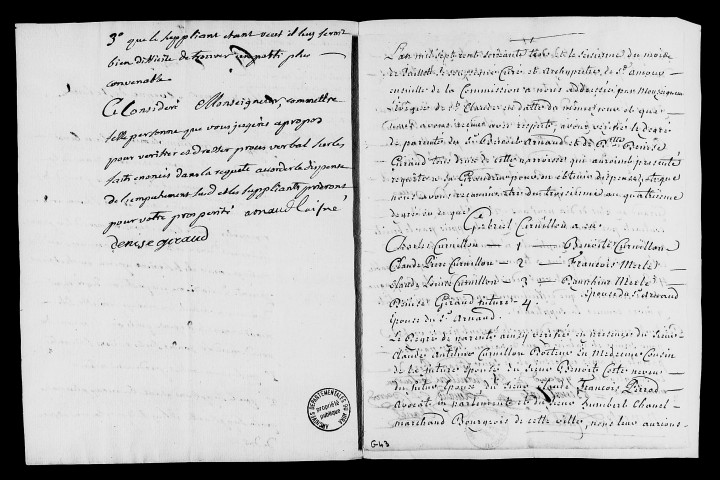 3º que le suppliant etant veuf il luy seroit
bien difficile de trouver un parti plus
convenable
Ce Consideré Monseigneur, commettre
telle personne que vous jugerés apropos
pour verifier et dresser proces verbal sur les
faits enoncés dans la requete accorder la dispense
de l'empechement susd et les suppliants prieront
pour votre prosperité arnaud laisné
denise giraud
ARCHIVES DEPARTEMENTALES DU JURA
propriété publique
L'an mil sept cent soixante et le sixieme du mois
de Juillet Curé et Archyprêtre de St amour
ensuitte de la Commission a nous addressée par Monseigneur
L'évêque de St Claude en datte du même jour et que
nous avons receue avec respect, avons vérifié le degré
de parenté du Sr Benoit Arnaud et de Dlle Denise
Giraud tous deux de cette parroisse qui auroient presenté
requette a sa Grandeur pour en obtenir dispense, et que
nous avons reconnu être du troisieme au quatrieme
degré ou de que
Gabriel Curnillon a eu
Charles Curnillon — 1 — Benoite Curnillon
Claude Piere Curnillon — 2 — François Merle
Claude Louise Curnillon — 3 — Merle
Denise Giraud future — 4. Epouse du Sr Arnaud
Epouse du Sr Arnaud.
Le Degré de parenté ainsy verifié en presence du Sieur
Claude Anthelme Curnillon Docteur en Medecine Cousin
de la future Epouse du Sieur Benoit Coste neveu
du futur Epoux du Sieur Claude François Perrod
Avocat en parlement et du Sieur Humbert Chanel
marchand Bourgeois de cette ville, nous leur aurions
G-43